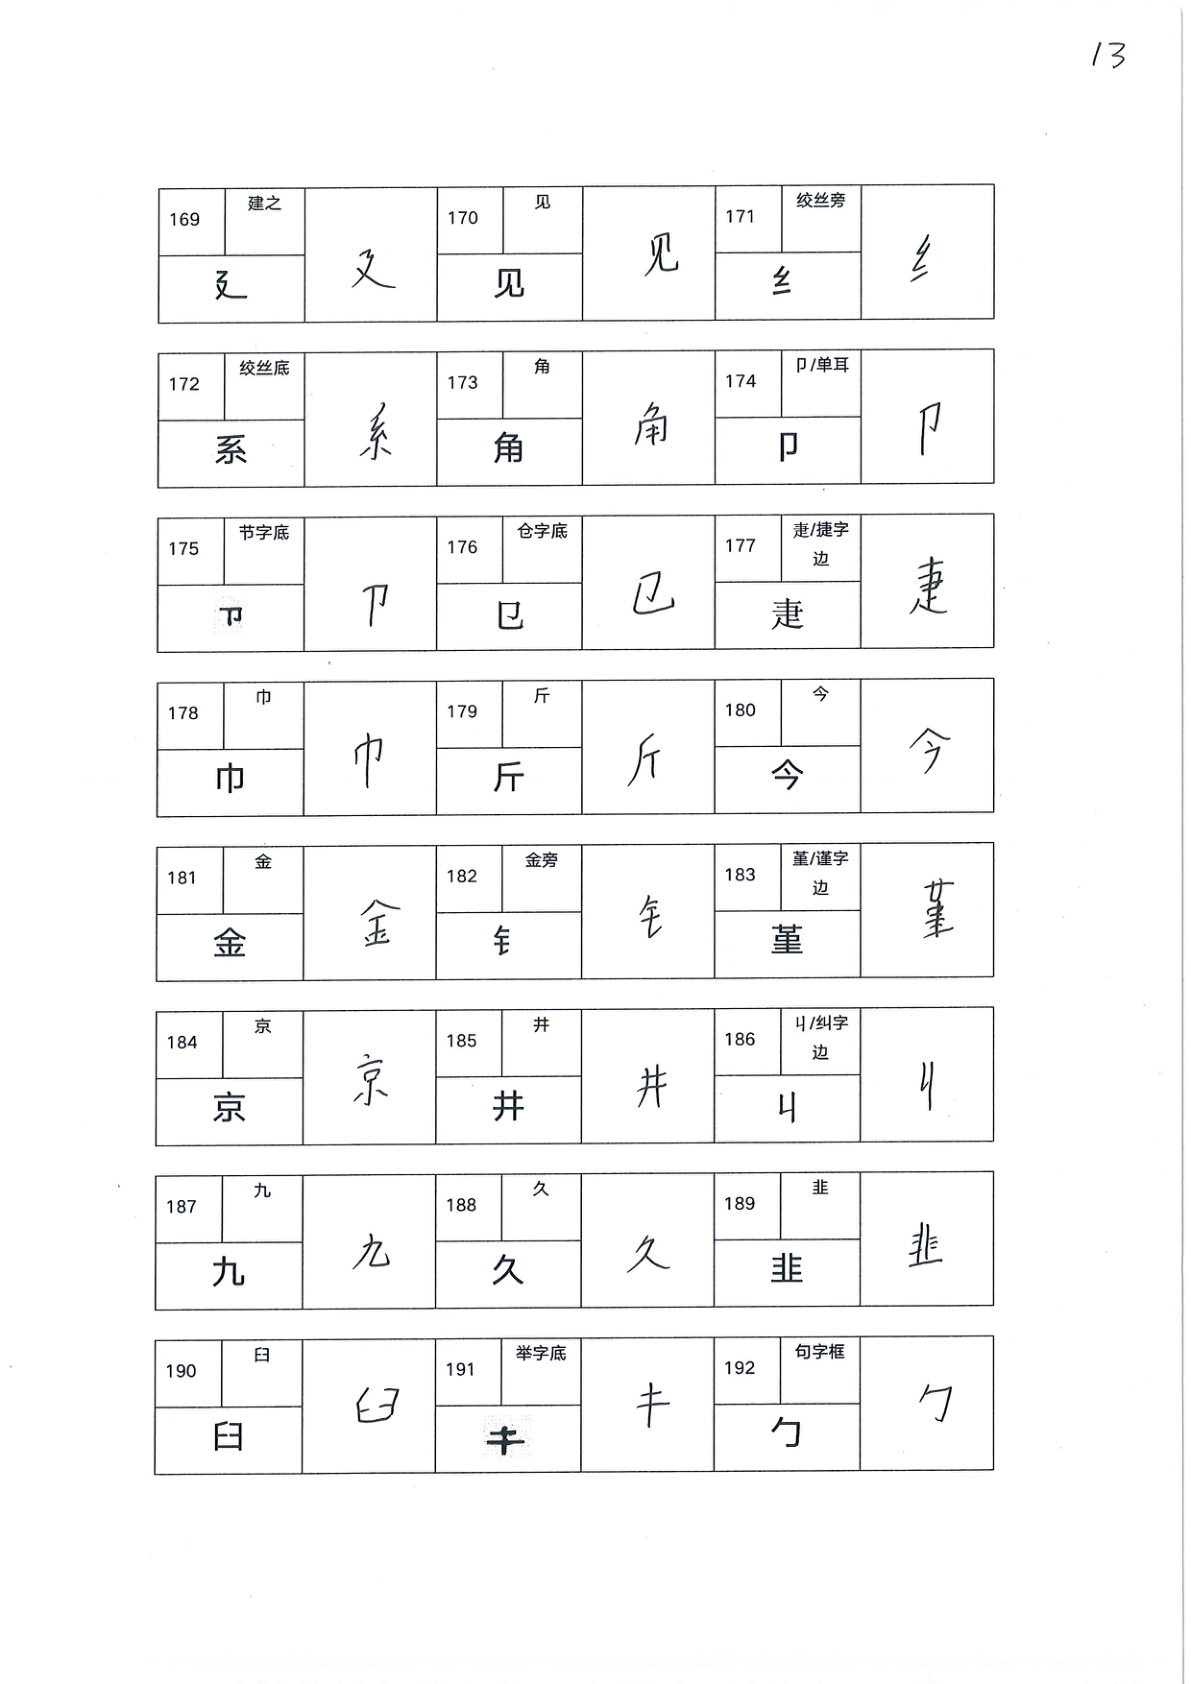 13
169 建之 廴 廴 170 见 见 见 171 绞丝旁 纟 纟
172 绞丝底 系 系 173 角 角 角 174 卩/单耳 卩 卩
175 节字底 卩 卩 176 仓字底 㔾 㔾 177 疌/捷字
边 疌 疌
178 巾 巾 巾 179 斤 斤 斤 180 今 今 今
181 金 金 金 182 金旁 钅 钅 183 堇/谨字
边 堇 堇
184 京 京 京 185 井 井 井 186 丩/纠字
边 丩 丩
187 九 九 九 188 久 久 久 189 韭 韭 韭
190 臼 臼 臼 191 举字底 192 句字框 勹 勹